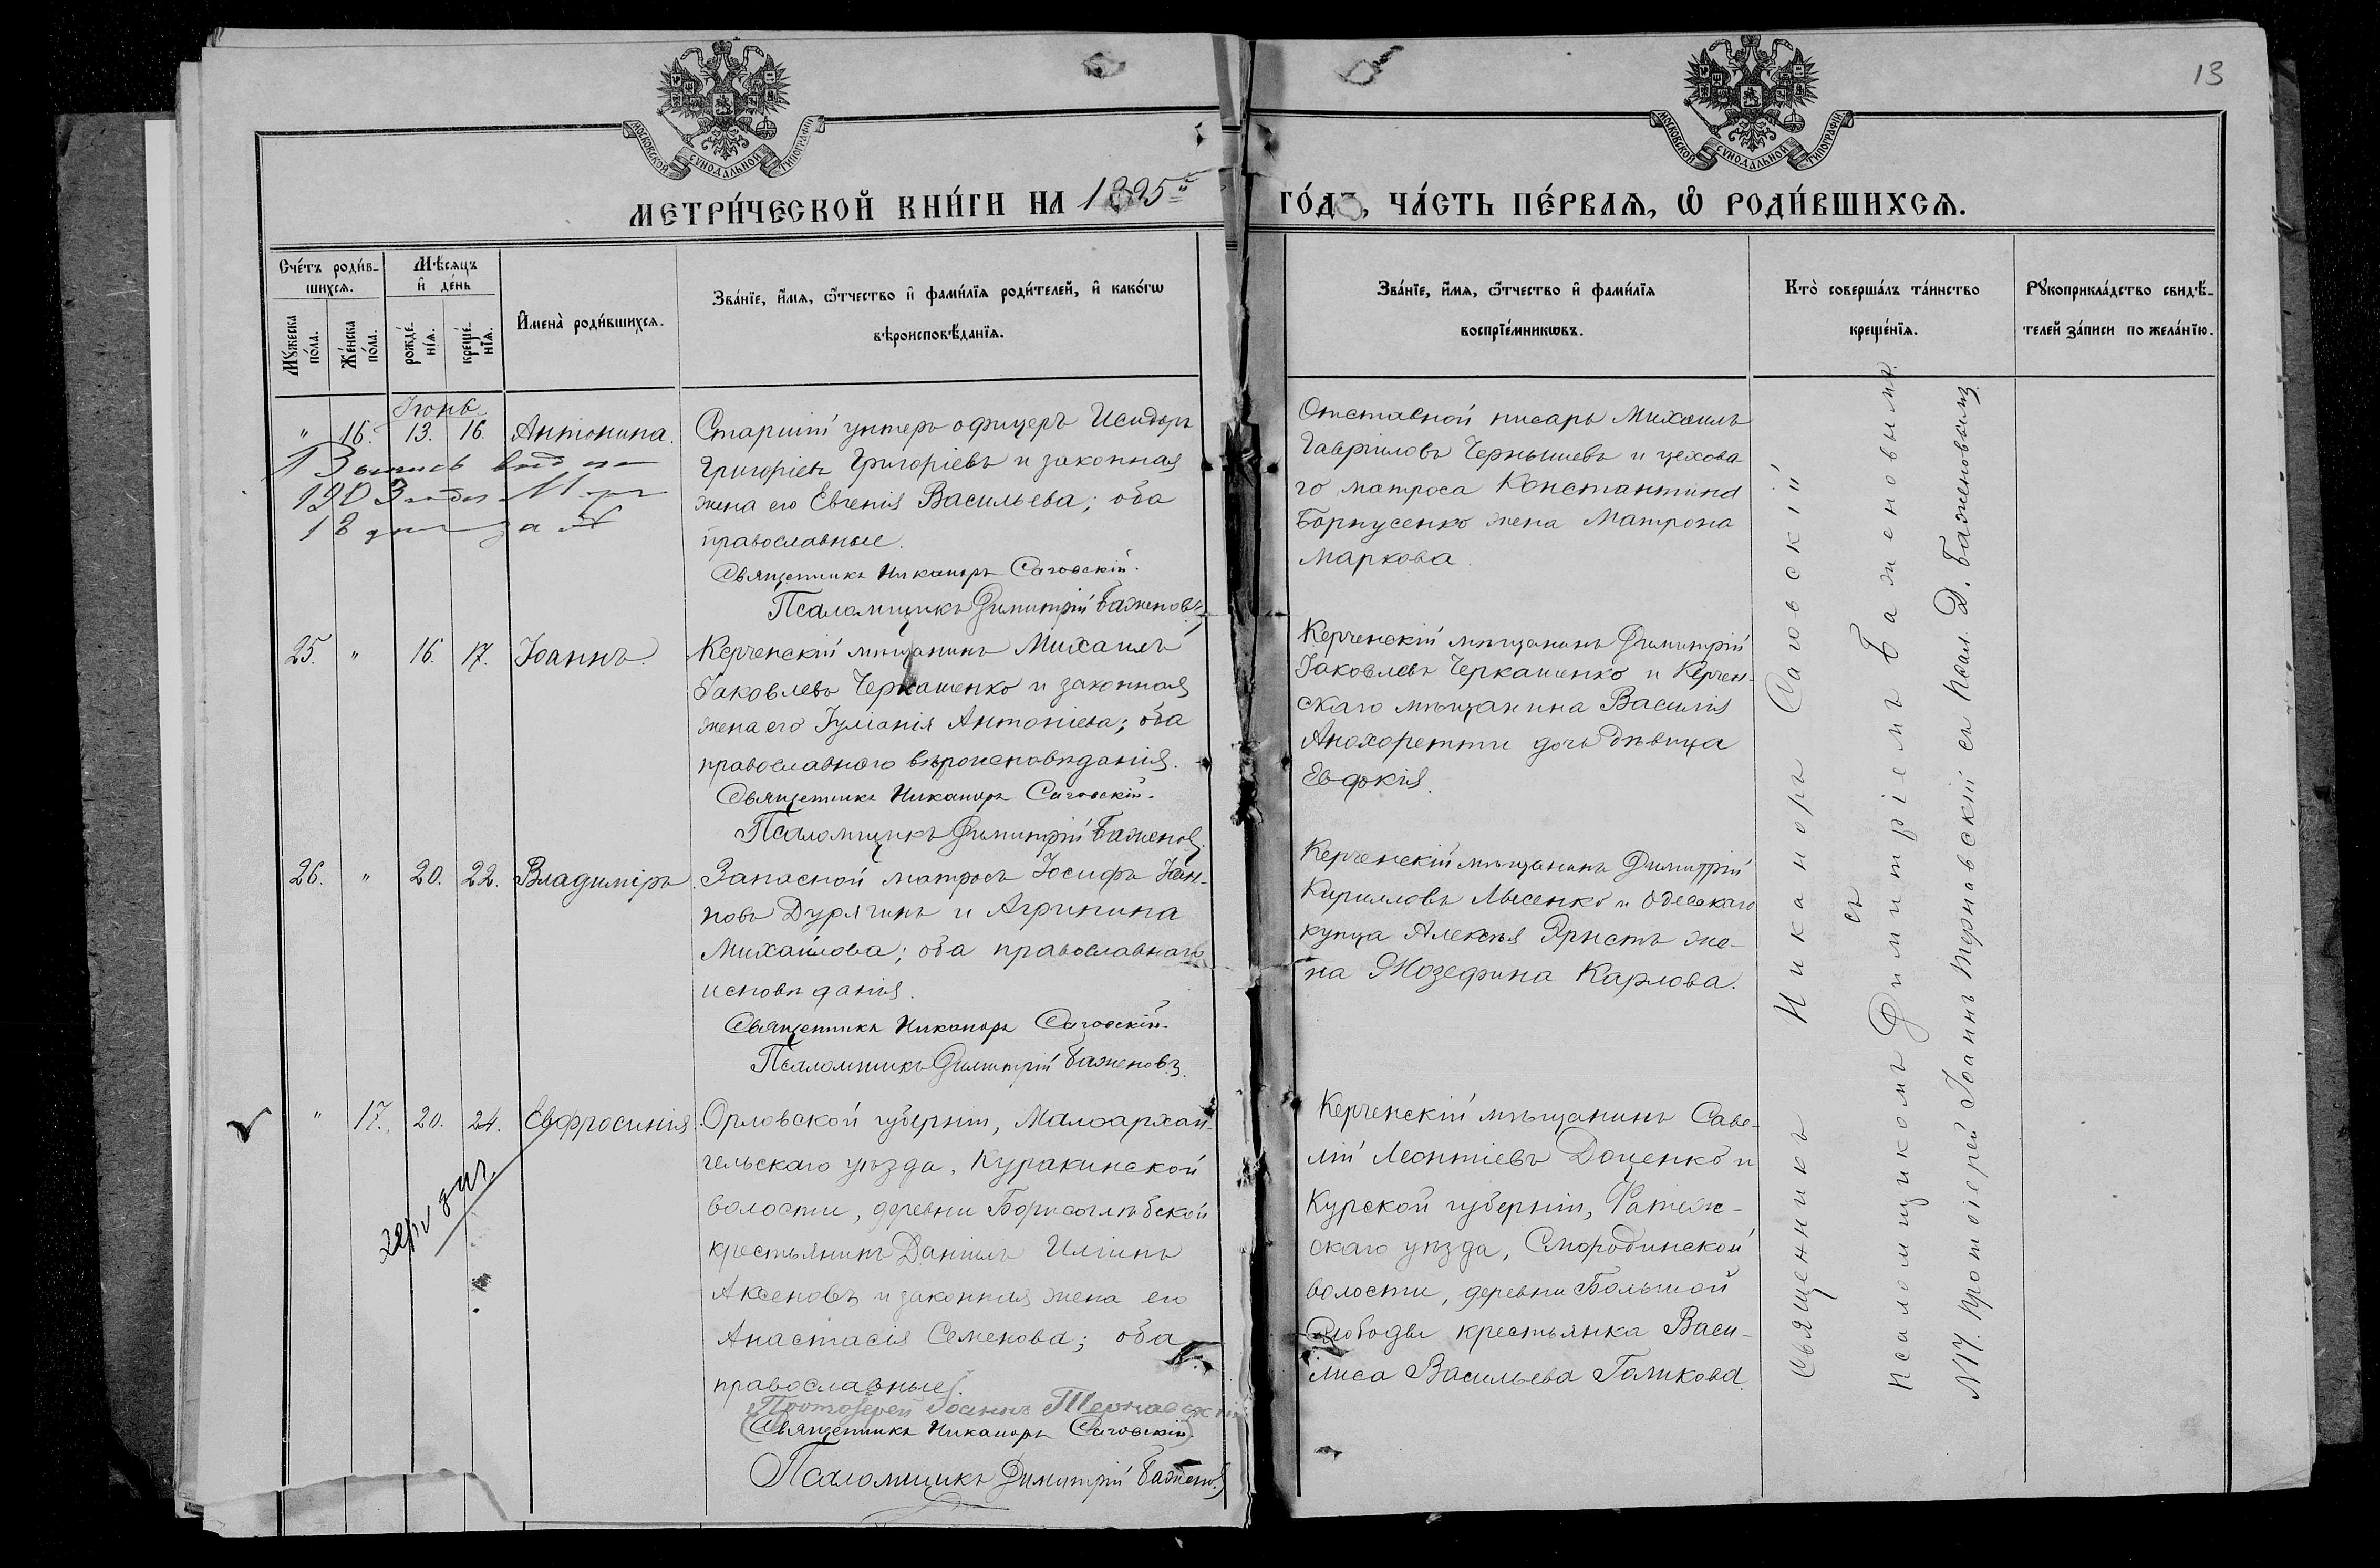 13
МОСКОВСКОЙ СѴНОДАЛЬНОЙ ТИПОГРАФІИ
МОСКОВСКОЙ СѴНОДАЛЬНОЙ ТИПОГРАФІИ
МЕТРИ́ЧЕСКОЙ КНИ́ГИ НА 1895й ГО́ДЪ, ЧА́СТЬ ПЕ́РВАЯ, Ѡ РОДИ́ВШИХСЯ.
Сче́тъ роди́в-
шихся.
Мꙋ́жеска по́ла.
Же́нска по́ла.
Мѣ́сяцъ
и де́нь
рожде́нія.
креще́нія.
Имена̀ роди́вшихся.
Зва́ніе, и́мя, ѻ҆́тчество и҆ фами́лія роди́телей, и҆ како́гѡ
вѣроисповѣ́данія.
Зва́ніе, и́мя, ѻ҆́тчество и҆ фами́лія
воспріе́мникѡвъ.
Кто̀ соверша́лъ та́инство
креще́нія.
Рꙋкоприкла́дство свидѣ́-
телей за́писи по жела́нію.
Іюнь
" 16. 13. 16. Антонина.
Старшій унтеръ офицеръ Исидоръ
Григоріевъ Григорьевъ и законная
жена его Евгенія Васильева; оба
православные.
Священникъ Никаноръ Саговскій.
Псаломщикъ Димитрій Баженовъ
1903 года
18 дня за №
Отставной писарь Михаилъ
Гавріиловъ Чернышевъ и цехова
го матроса Константина
Борнусенко жена Матрона
Маркова.
25. " 16. 17. Іоаннъ.
Керченскій мѣщанинъ Михаилъ
Іаковлевъ Черкашенко и законная
жена его Іуліанія Антоніева; оба
православнаго вѣроисповѣданія.
Священникъ Никаноръ Саговскій.
Псаломщикъ Димитрій Баженовъ.
Керченскій мѣщанинъ Димитрій
Іаковлевъ Черкашенко и Керчен-
скаго мѣщанина Василія
Анахоретти дочь дѣвица
Евдокія.
26. " 20. 22. Владиміръ.
Запасной матросъ Іосифъ Іоан-
новъ Дурягинъ и Агрипина
Михайлова; оба православнаго
исповѣданія.
Священникъ Никаноръ Саговскій.
Псаломщикъ Димитрій Баженовъ.
Керченскій мѣщанинъ Димитрій
Кирилловъ Лысенко и Одесскаго
купца Алексѣя Эрнстъ же-
на Жозефина Карлова.
" 17. 20. 24. Евфросинія.
Орловской губерніи, Малоархан-
гельскаго уѣзда, Куракинской
волости, деревни Борисоглѣбской
крестьянинъ Даніилъ Иліинъ
Аксеновъ и законная жена его
Анастасія Семенова; оба
православные.
Протоіерей Іоаннъ Тернавскій
(Священникъ Никаноръ Саговскій)
Псаломщикъ Димитрій Баженовъ
Керченскій мѣщанинъ Саве-
лій Леонтіевъ Доценко и
Курской губерніи, Фатеж-
скаго уѣзда, Смородинской
волости, деревни Большой
Слободы крестьянка Васи-
лиса Васильева Голикова.
Священникъ Никаноръ Саговскій
съ
псаломщикомъ Димитріемъ Баженовымъ.
№17. Протоіерей Іоаннъ Тернавскій съ псал. Д. Баженовымъ